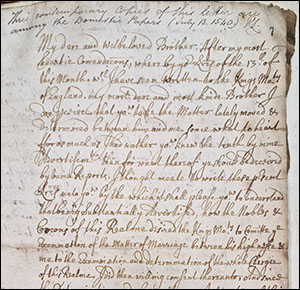 Three contemporary Copies of this letter are
among the Domestic Papers (July 13. 1540)
My dere and welbeloved Brother After my most
hartie Comendacons, where by yor of the 13th of
this Month wch ye have written to the Kings Maty
of England my most dere and most kinde Brother I
do perceive that ye take the Matter lately moved &
Determined between him and me somewhat to heart
for as much as I had rather ye knew the truth by mine
Advertisement than for want thereof ye should be deceived
by vaine Reports, I thought meete to write these present
unto yor by the which it shall please yor to understand
that being substantially advertised how the Nobles &
Comons of this Realme desired the Kings Maty to Comitt the
of the Matter of Marriage between his highness &
me to the Examination and determination of the whole Clergie
of this Realme, I did then willing consent thereunto, and since